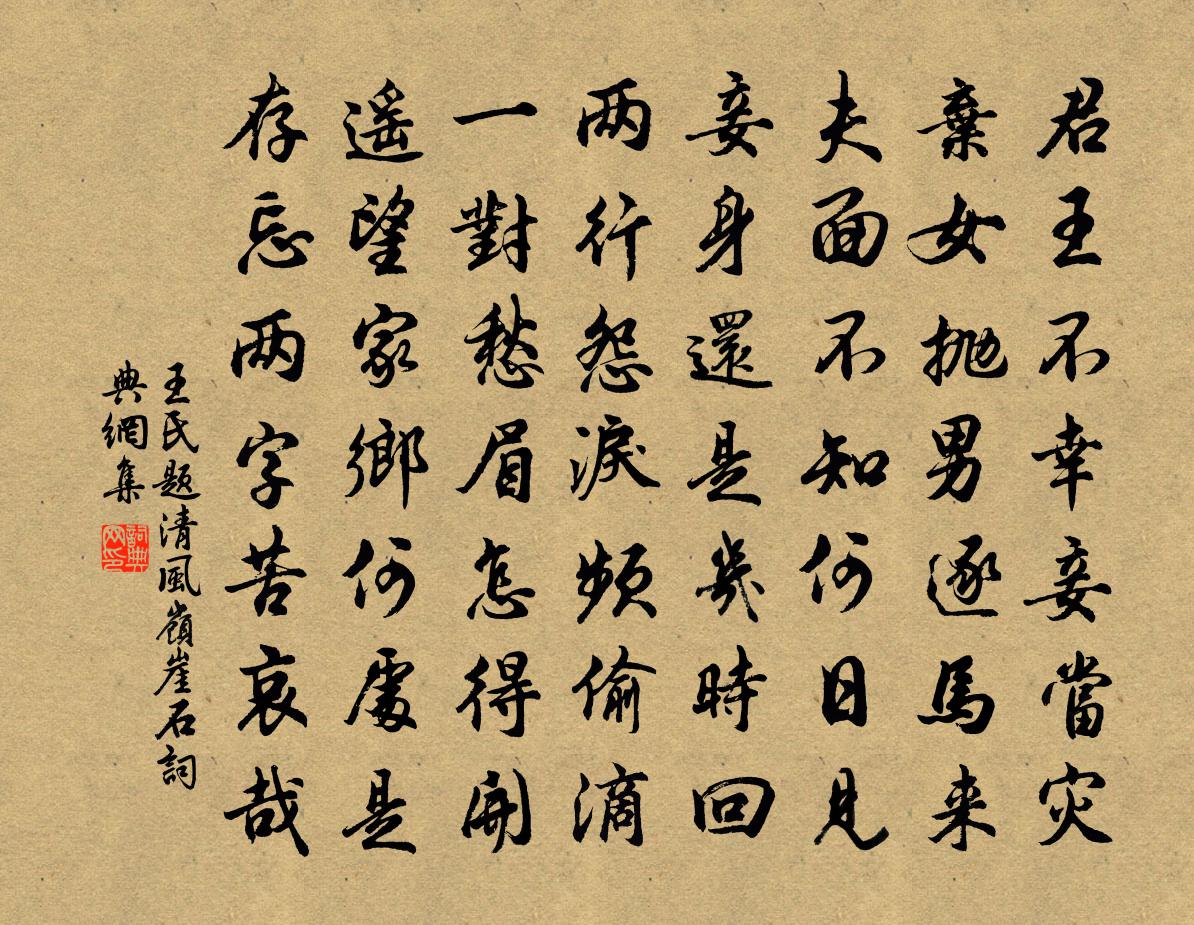 君王不幸妾當灾
棄女抛男逐馬来
夫面不知何日見
妾身還是幾時回
两行怨淚頻偷滴
一對愁眉怎得開
遥望家鄉何處是
存忘两字苦哀哉
王氏题清風嶺崖石詞
典網集
詞典网印